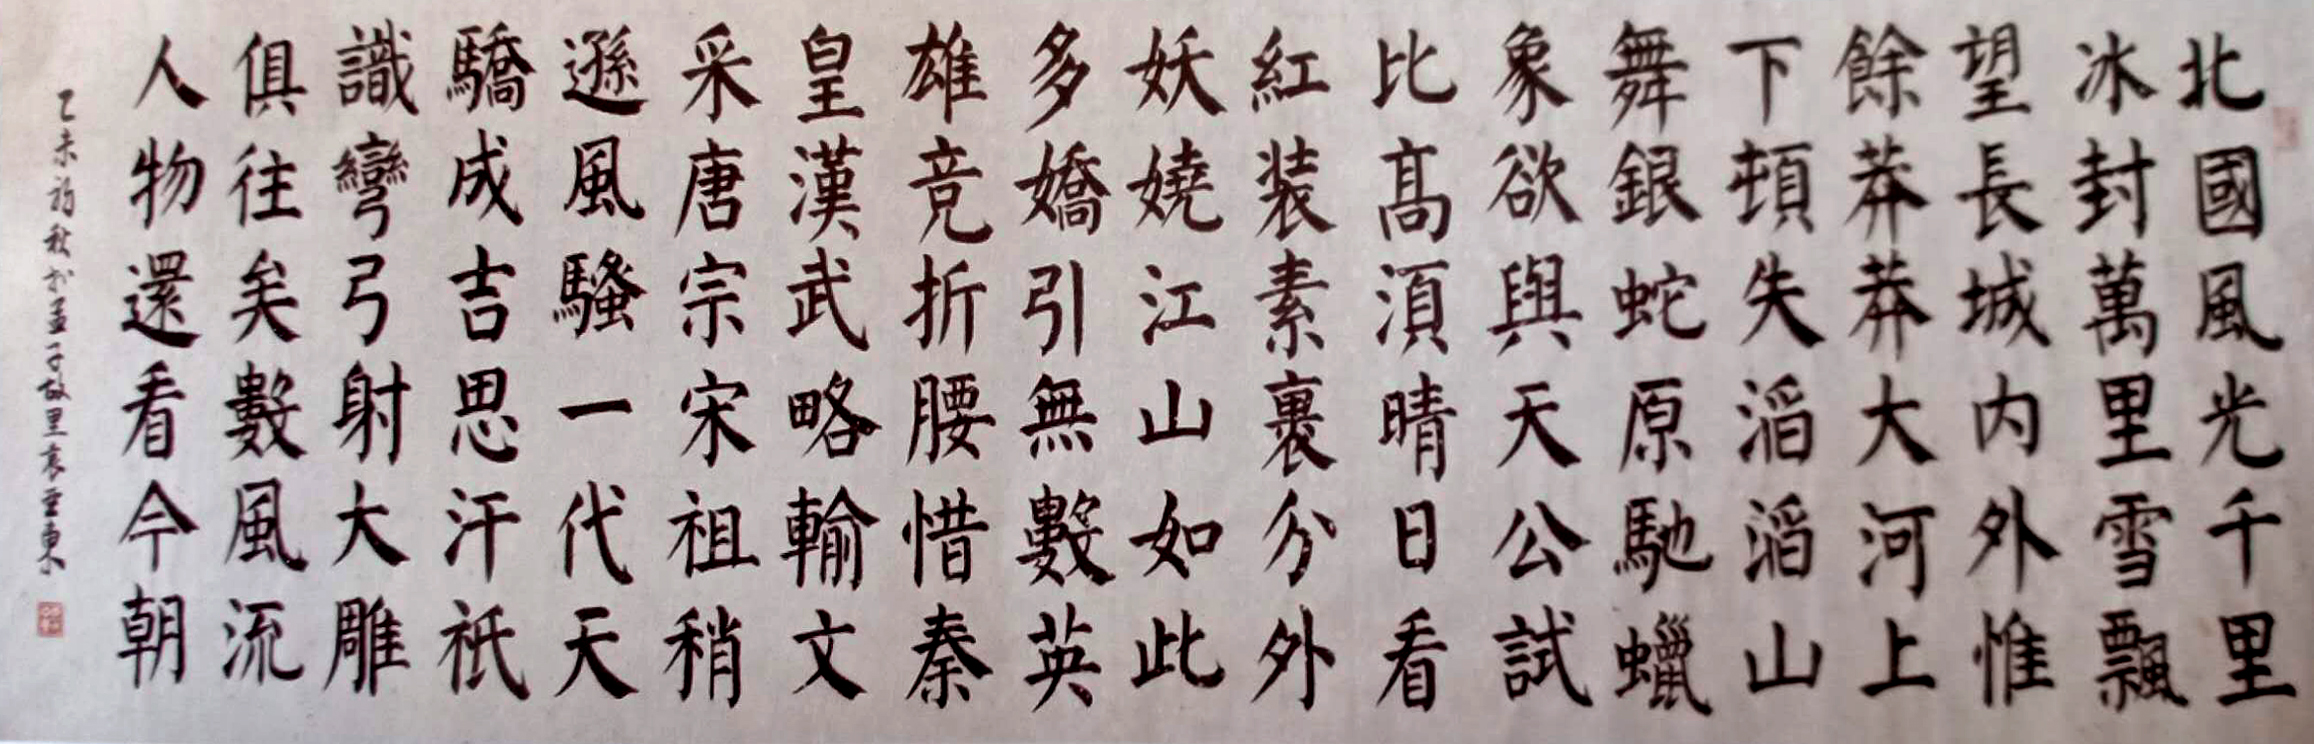 北國風光千里
冰封萬里雪飄
望長城内外惟
餘莽莽大河上
下頓失滔滔山
舞銀蛇原馳蠟
象欲與天公試
比髙湏晴日看
紅装素裹分外
妖嬈江山如此
多嬌引無數英
雄竞折腰惜秦
皇漢武略輸文
采唐宗宋祖稍
遜風騷一代天
驕成吉思汗祇
識彎弓射大雕
俱往矣數風流
人物還看今朝
乙未初秋於孟子故里袁亚東